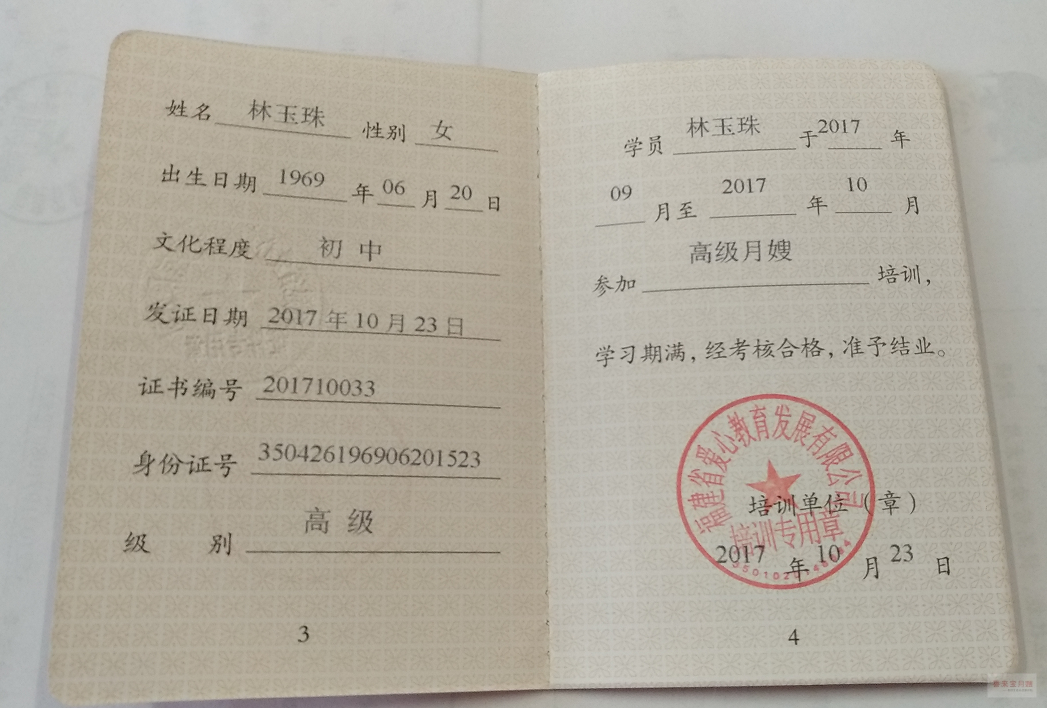 姓名 林玉珠 性别 女
出生日期 1969 年 06 月 20 日
文化程度 初中
发证日期 2017 年 10 月 23 日
证书编号 201710033
身份证号 350426196906201523
级 别 高级
3
学员 林玉珠 于 2017 年
09 月至 2017 年 10 月
参加 高级月嫂 培训，
学习期满，经考核合格，准予结业。
福建省爱心教育发展有限公司
培训单位（章）
培训专用章
2017 年 10 月 23 日
4